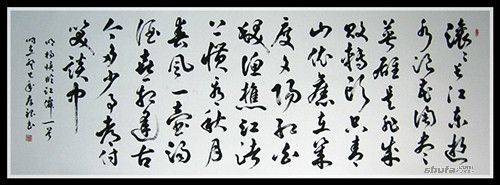 滚滚长江东逝
水浪花淘尽
英雄是非成
败转头空青
山依旧在几
度夕阳红白
发渔樵江渚
上惯看秋月
春风一壶浊
酒喜相逢古
今多少事都付
笑谈中
明杨慎临江仙一首